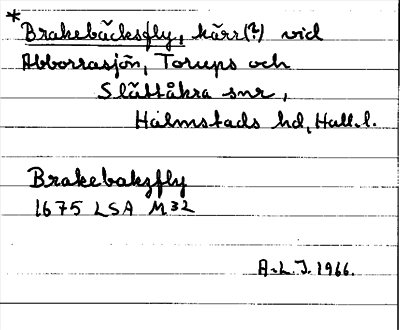 *Brakebäcksfly, kärr(?) vid
Abborrasjön, Torups och
Slättåkra snr,
Halmstads hd, Hall. l.
Brakebakzfly
1675 LSA M32
A.L.J. 1966.